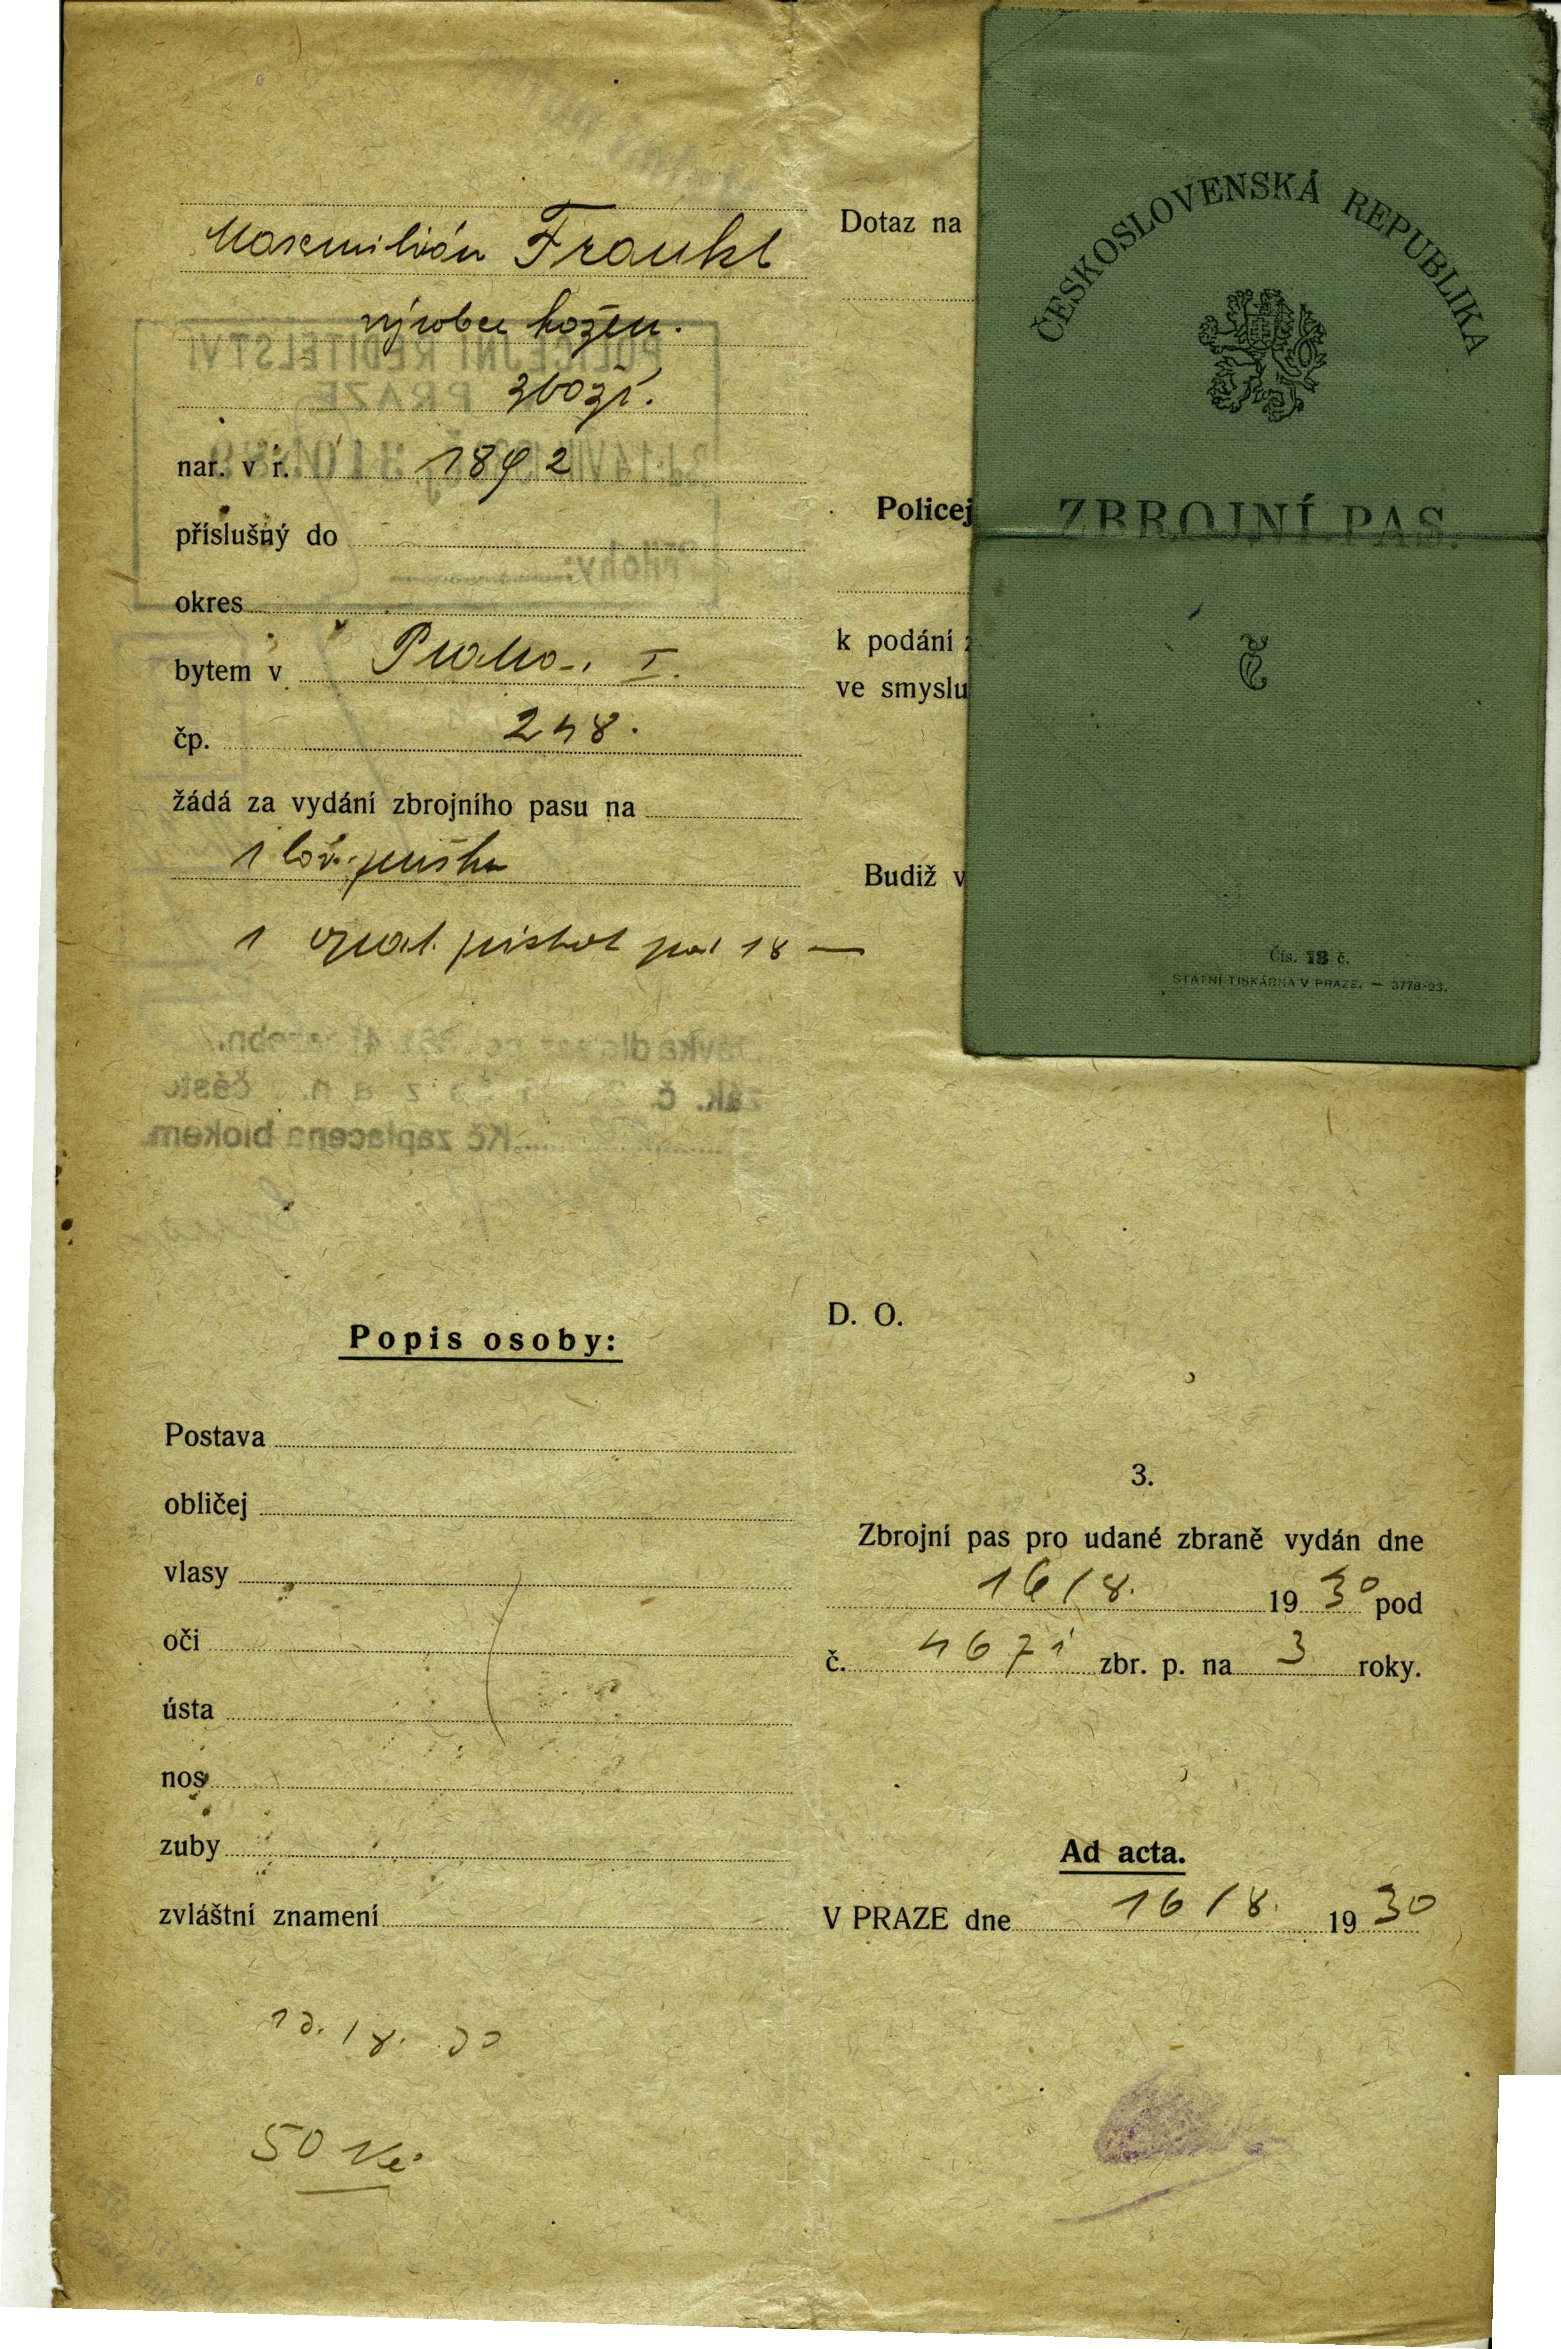 Maxmilián Frankl
výrobce kožen.
zboží.
nar. v r. 1892
příslušný do
okres
bytem v Praha I.
čp. 248.
žádá za vydání zbrojního pasu na
1 lov. pušku
1 opak. pistol pod 18 —
Popis osoby:
Postava
obličej
vlasy
oči
ústa
nos
zuby
zvláštní znamení
50 Kč
Dotaz na
Policej
k podání
ve smyslu
Budiž v
D. O.
3.
Zbrojní pas pro udané zbraně vydán dne
16/8. 1930 pod
č. 4671 zbr. p. na 3 roky.
Ad acta.
V PRAZE dne 16/8. 1930
ČESKOSLOVENSKÁ REPUBLIKA
ZBROJNÍ PAS.
Čís. 13 č.
STÁTNÍ TISKÁRNA V PRAZE. — 3778-23.
POLICEJNÍ ŘEDITELSTVÍ
PRAZE
Přílohy:
Kč zaplacena blokem